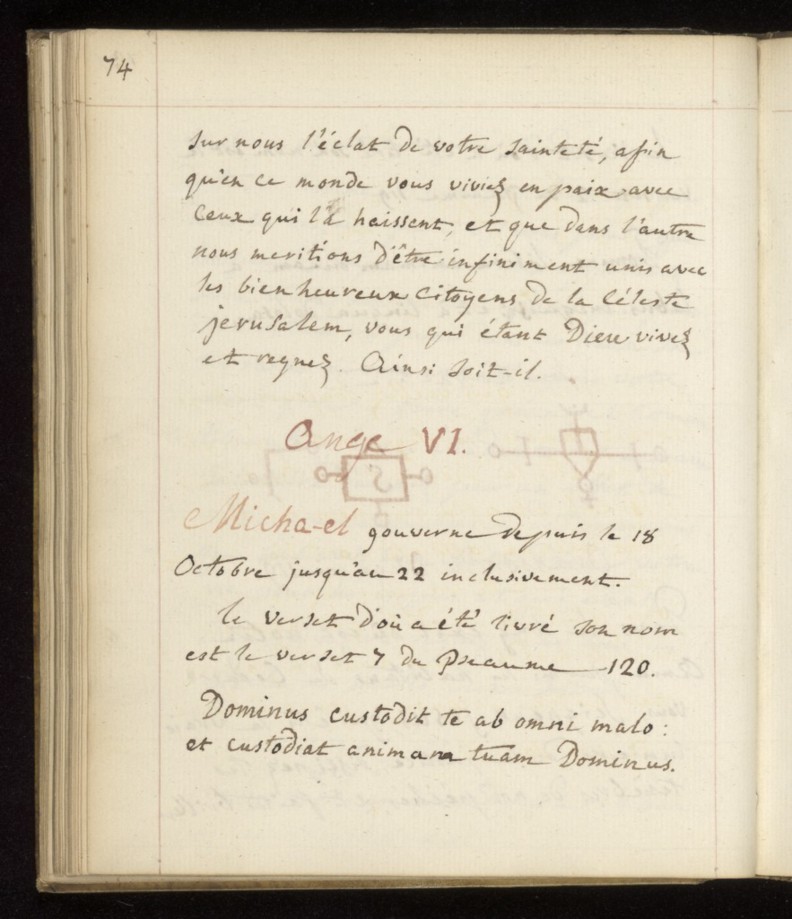 74
sur nous l'éclat de votre sainteté, afin
qu'en ce monde vous viviez en paix avec
ceux qui la haissent, et que dans l'autre
nous meritions d'être infiniment unis avec
les bienheureux citoyens de la Céleste
jerusalem, vous qui étant Dieu vivez
et regnez. Ainsi soit-il.
Ange VI.
Micha-el gouverne depuis le 18
Octobre jusqu'au 22 inclusivement.
le verset d'où a été livré son nom
est le verset 7 du Pseaume 120.
Dominus custodit te ab omni malo :
et custodiat animam tuam Dominus.